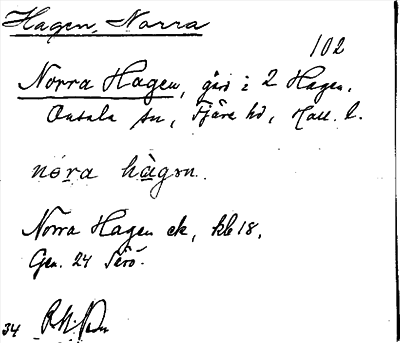 Hagen, Norra
102
Norra Hagen, gård i 2 Hagen,
Onsala sn, Fjäre hd, Hall. l.
nó̱ra hà̱gən.
Norra Hagen ek, kbl 18,
Gen. 24 Särö.
34